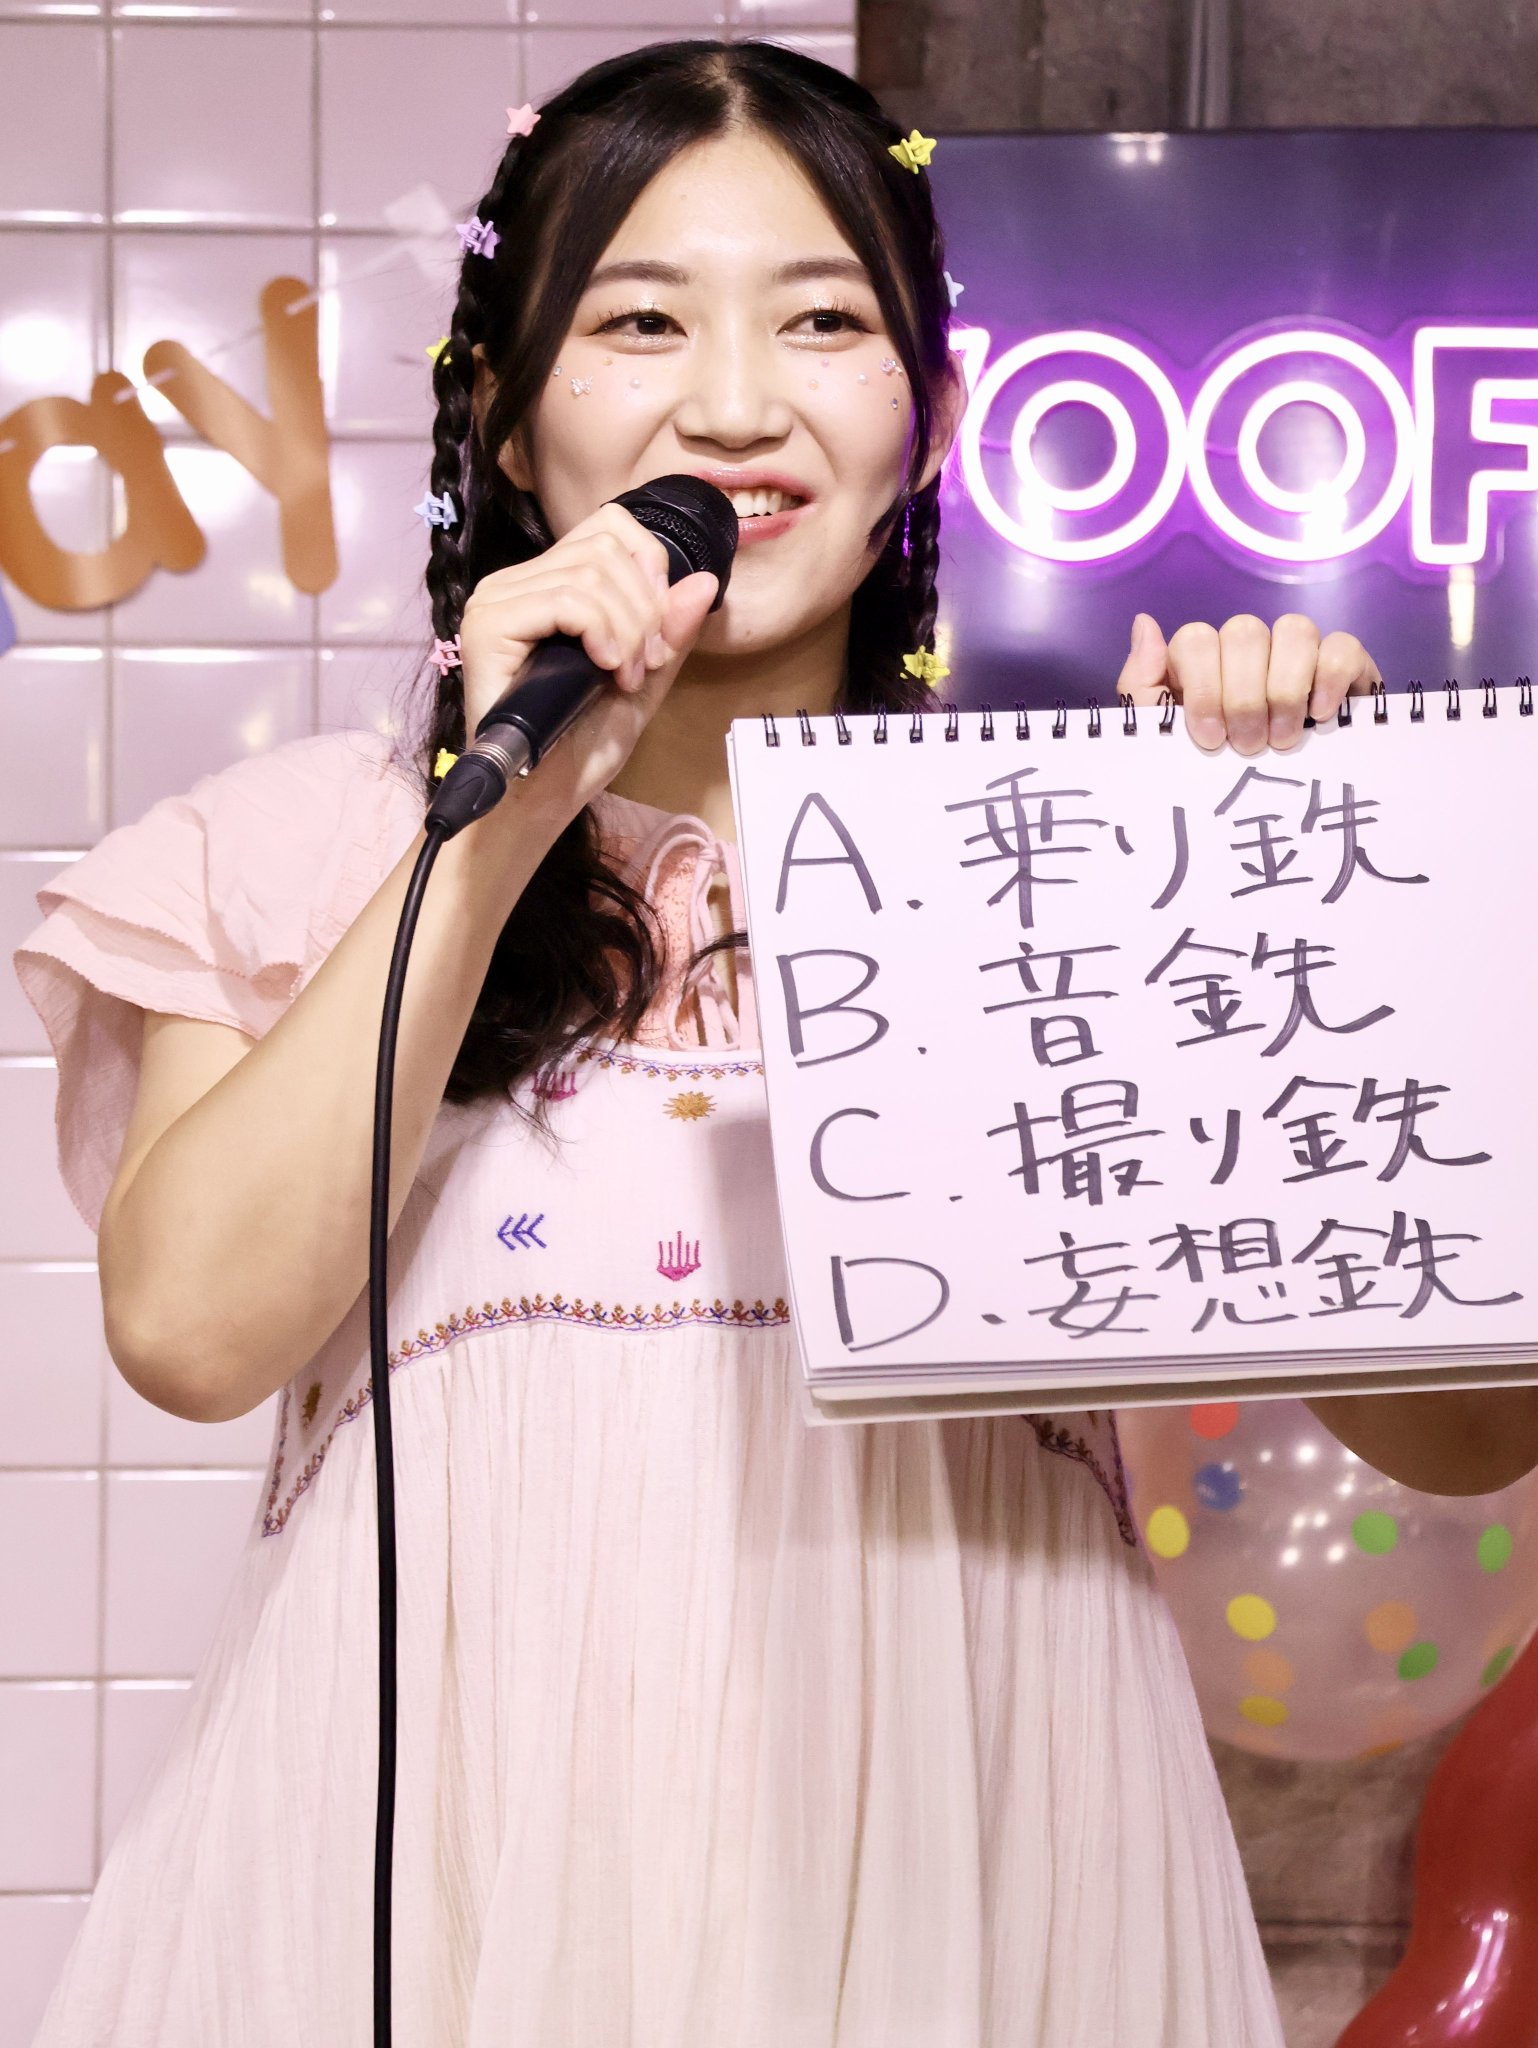 ay
OOF
A. 乗り鉄
B. 音鉄
C. 撮り鉄
D. 妄想鉄